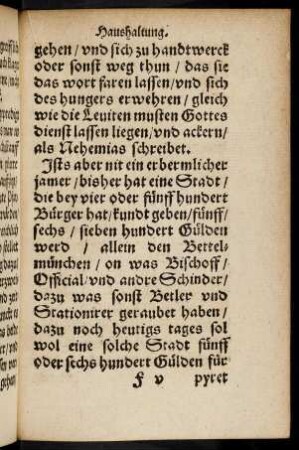 Haushaltung.
gehen / vnd sich zu handtwerck
oder sonst weg thun / das sie
das wort faren lassen / vnd sich
des hungers erwehren / gleich
wie die Leuiten musten Gottes
dienst lassen liegen / vnd ackern /
als Nehemias schreibet.
Ists aber nit ein erbermlicher
jamer / bisher hat eine Stadt /
die bey vier oder fünff hundert
Bürger hat / kundt geben / fünff /
sechs / sieben hundert Gülden
werd / allein den Bettel-
münchen / on was Bischoff /
Official / vnd andre Schinder /
dazu was sonst Betler vnd
Stationirer geraubet haben /
dazu noch heutigs tages sol
wol eine solche Stadt fünff
oder sechs hundert Gülden für
f v pyret